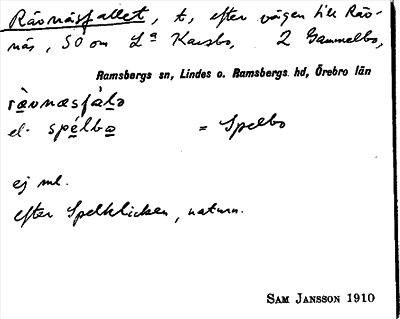 Rävnäsfallet, t, efter vägen till Räv-
näs, SO om La Karsbo, 2 Gammelbo,
Ramsbergs sn, Lindes o. Ramsbergs hd, Örebro län
rävnæsfalə
el. spélba = Spelbo
ej ml.
efter Spelklicken, naturn.
SAM JANSSON 1910